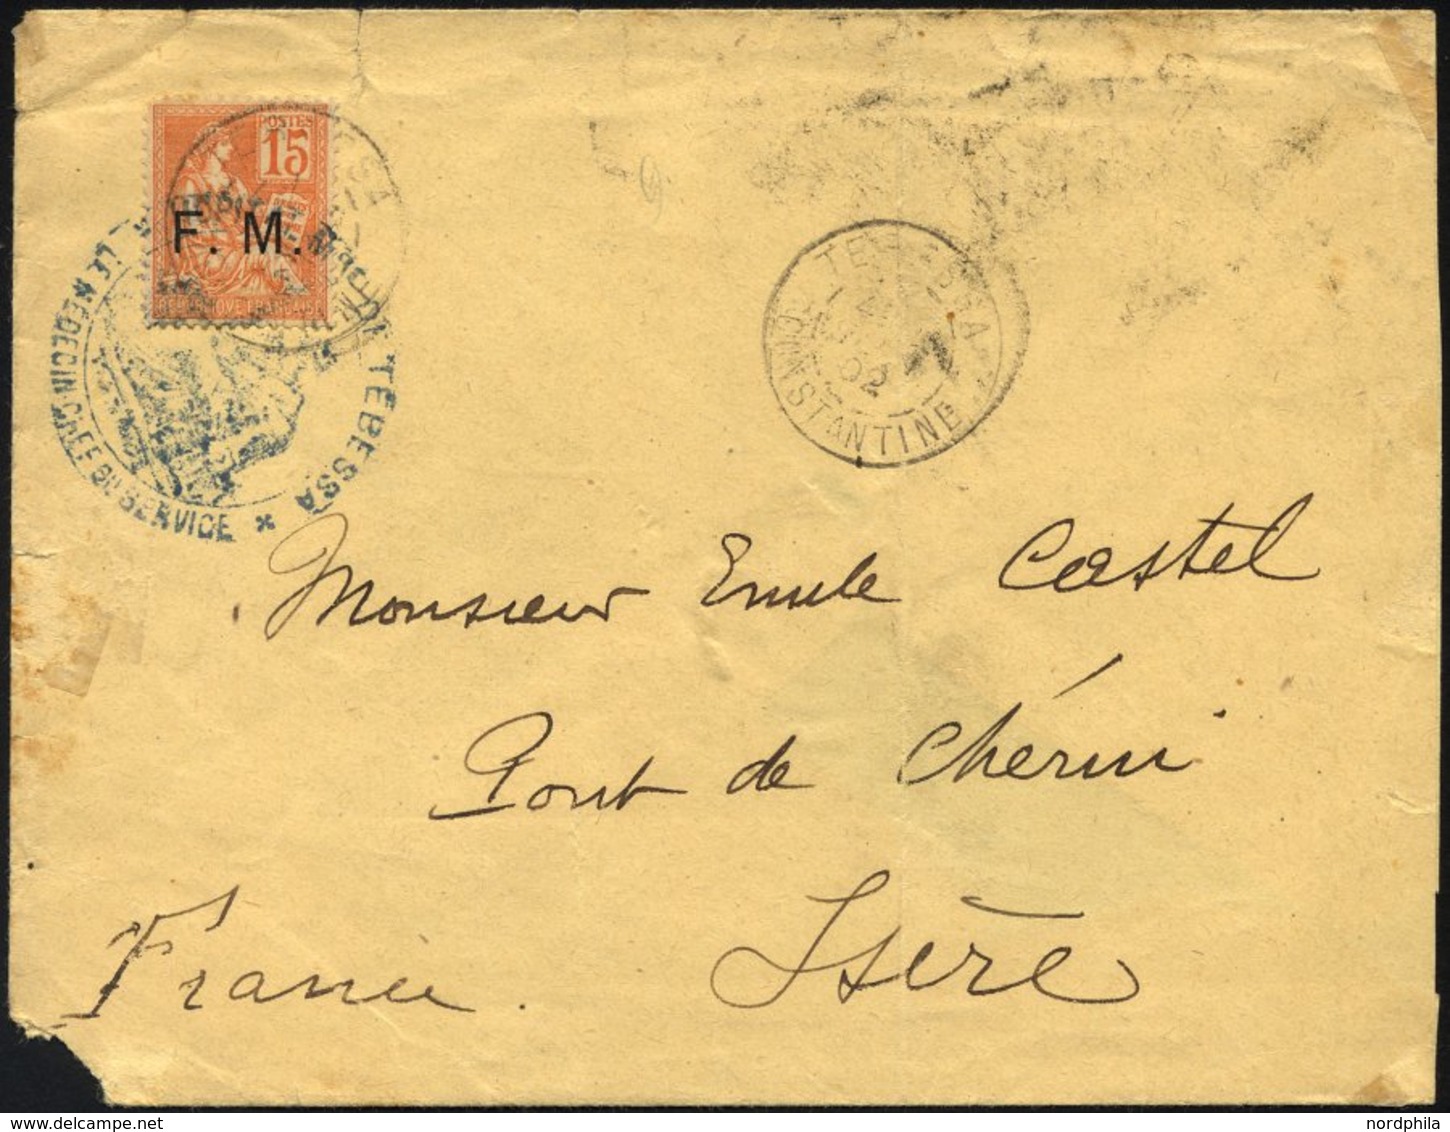 POSTES
15
F. M.
TEBESSA
LE MEDECIN CHEF DU SERVICE
TEBESSA
02
CONSTANTINE
Monsieur Emile Castel
Pont de Chérui
Isère
France.
nordphila